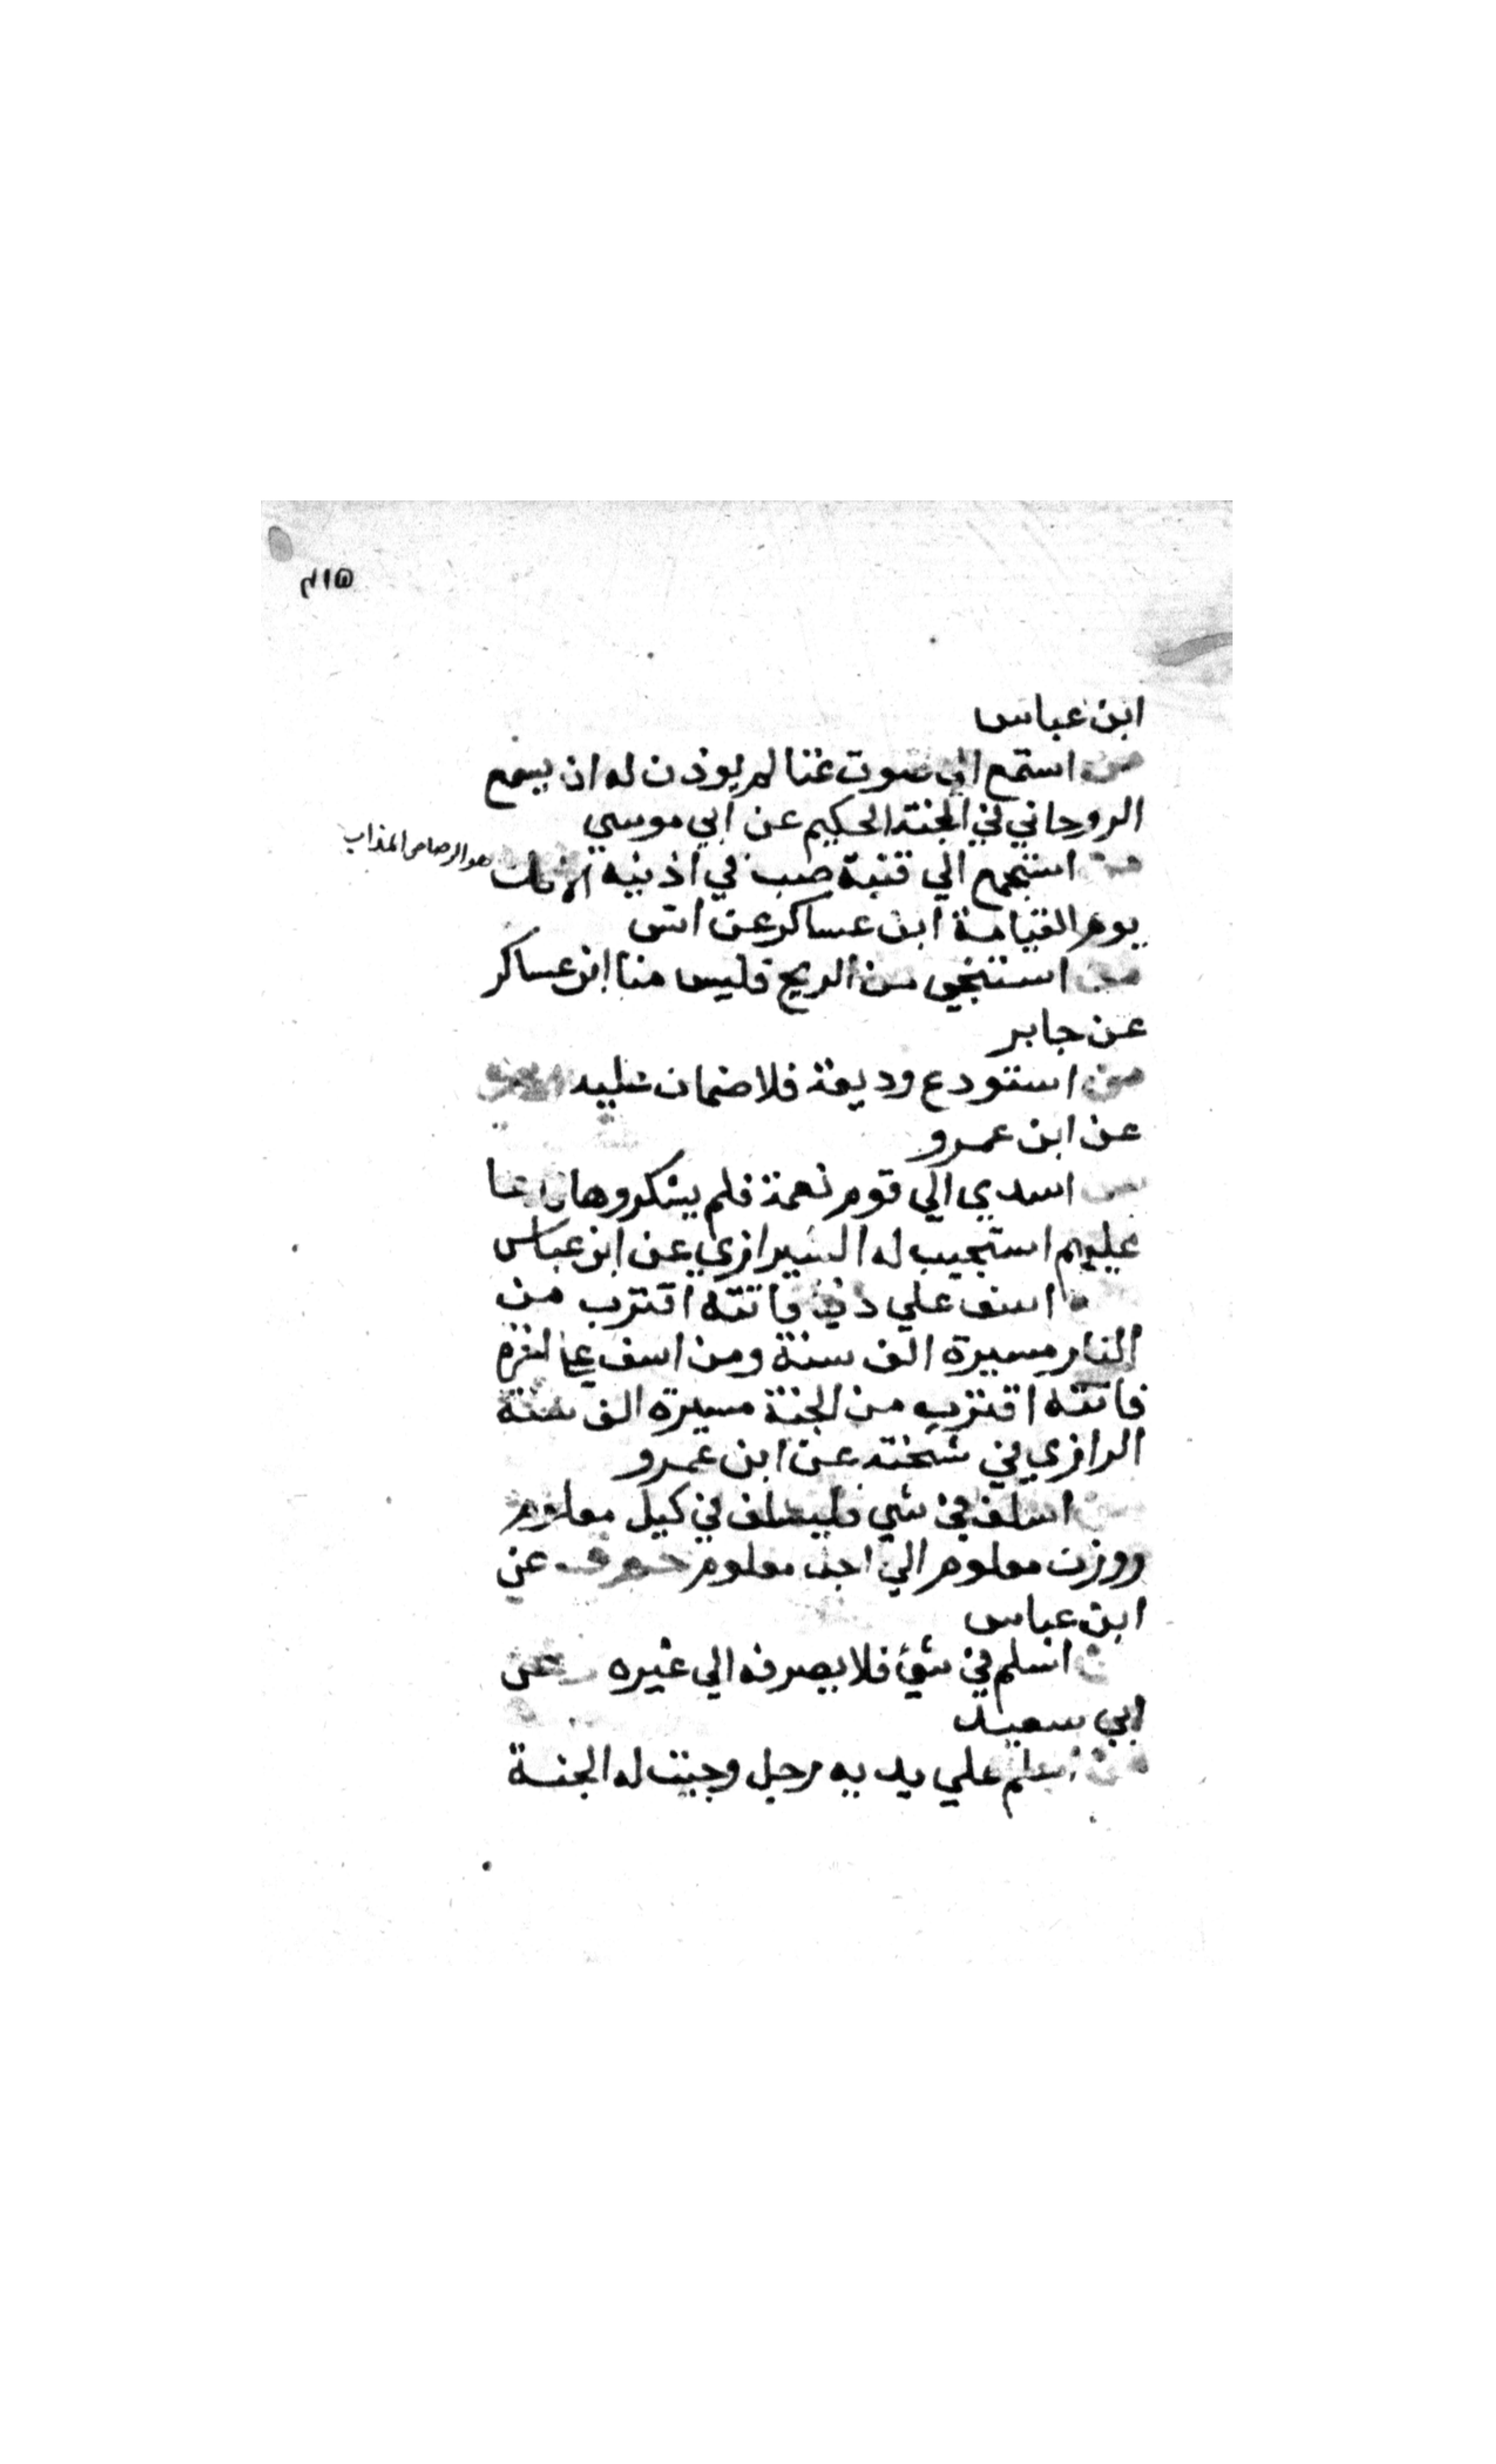 ٤١٥
ابن عباس
من استمع الي صوت غنا لم يوذن له ان يسمع
الروحاني في الجنة الحكيم عن ابي موسي
من استمع الي قينة صب في اذنيه الانك
هو الرصاص المذاب
يوم القيامة ابن عساكر عن انس
من استنجي من الريح فليس منا ابن عساكر
عن جابر
من استودع وديعة فلا ضمان عليه
عن ابن عمرو
من اسدي الي قوم نعمة فلم يشكروها فدعا
عليهم استجيب له الشيرازي عن ابن عباس
اسف علي دنيا فاتته اقترب من
النار مسيرة الف سنة ومن اسف علي اخرة
فاتته اقترب من الجنة مسيرة الف سنة
الرازي في مشيخته عن ابن عمرو
من اسلف في شي فليسلف في كيل معلوم
ووزن معلوم الي اجل معلوم حم ق عن
ابن عباس
من اسلم في شئ فلا يصرفه الي غيره عن
ابي سعيد
من اسلم علي يديه رجل وجبت له الجنة